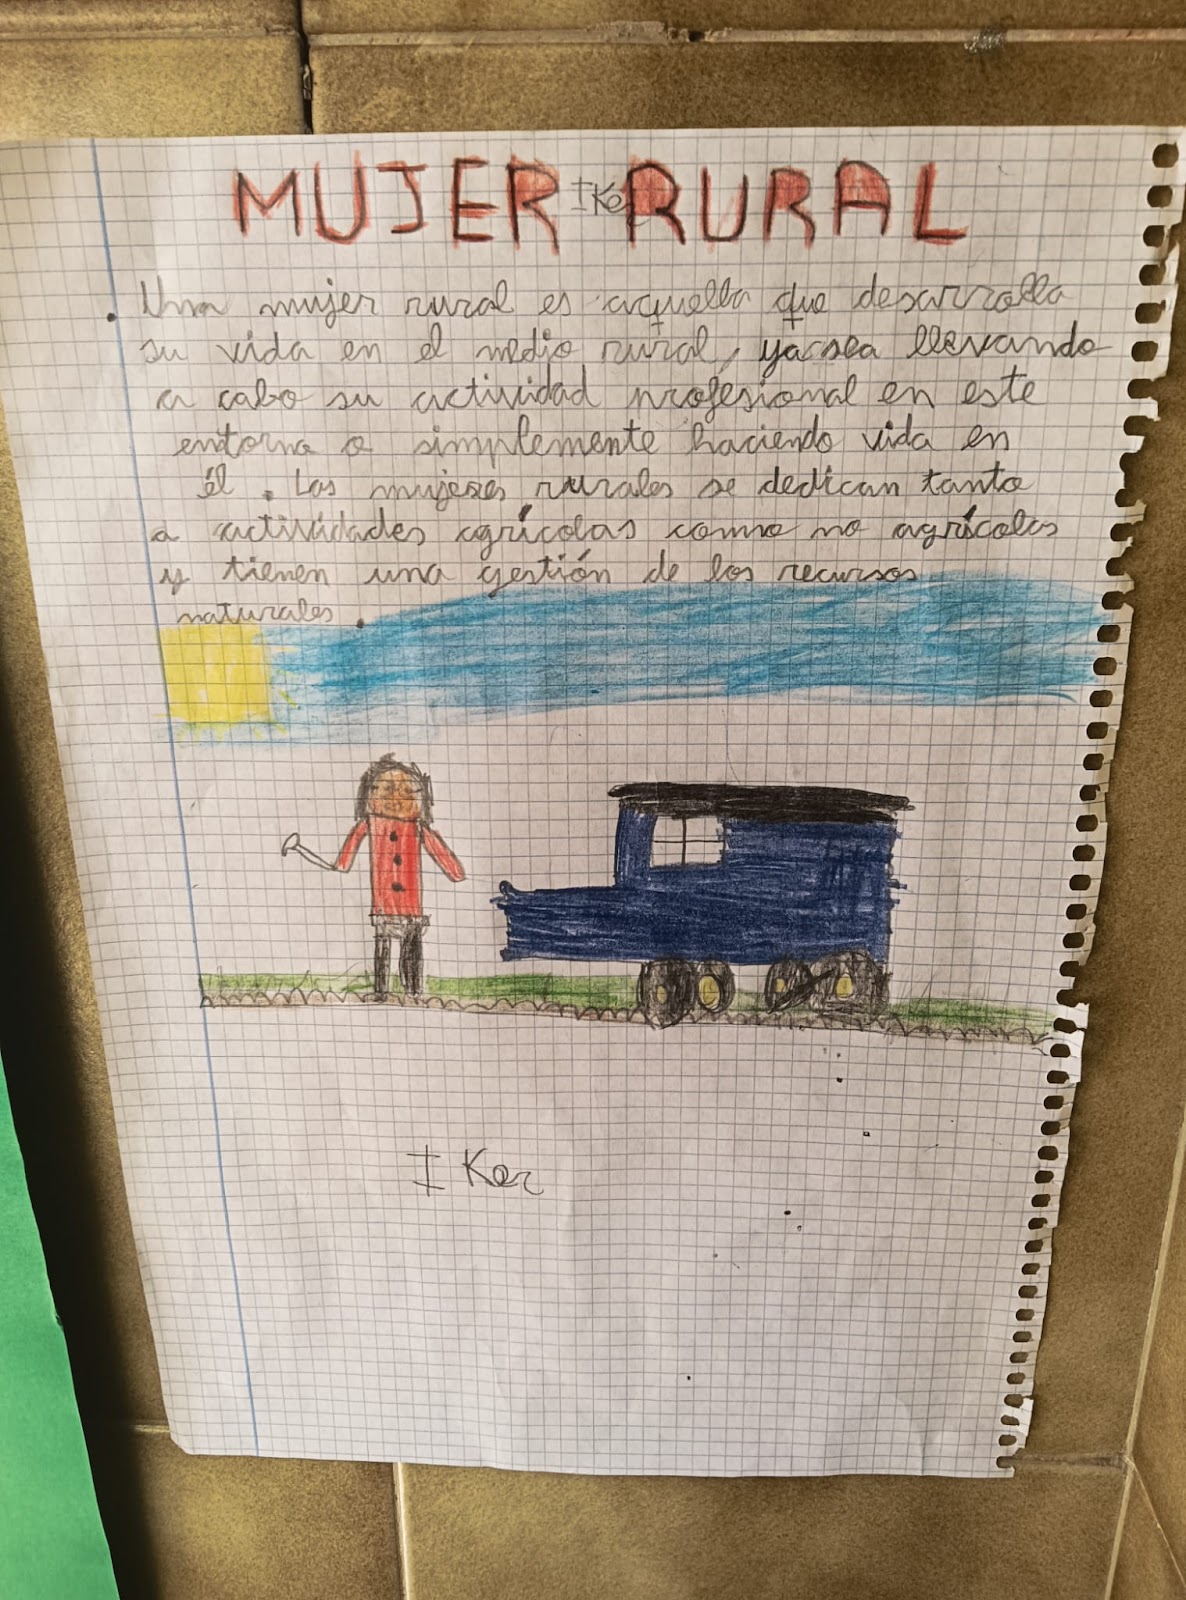 MUJER IKer RURAL
Una mujer rural es aquella que desarrolla
su vida en el medio rural, ya sea llevando
a cabo su actividad profesional en este
entorno o simplemente haciendo vida en
él. Las mujeres rurales se dedican tanto
a actividades agrícolas como no agrícolas
y tienen una gestión de los recursos
naturales.
IKer